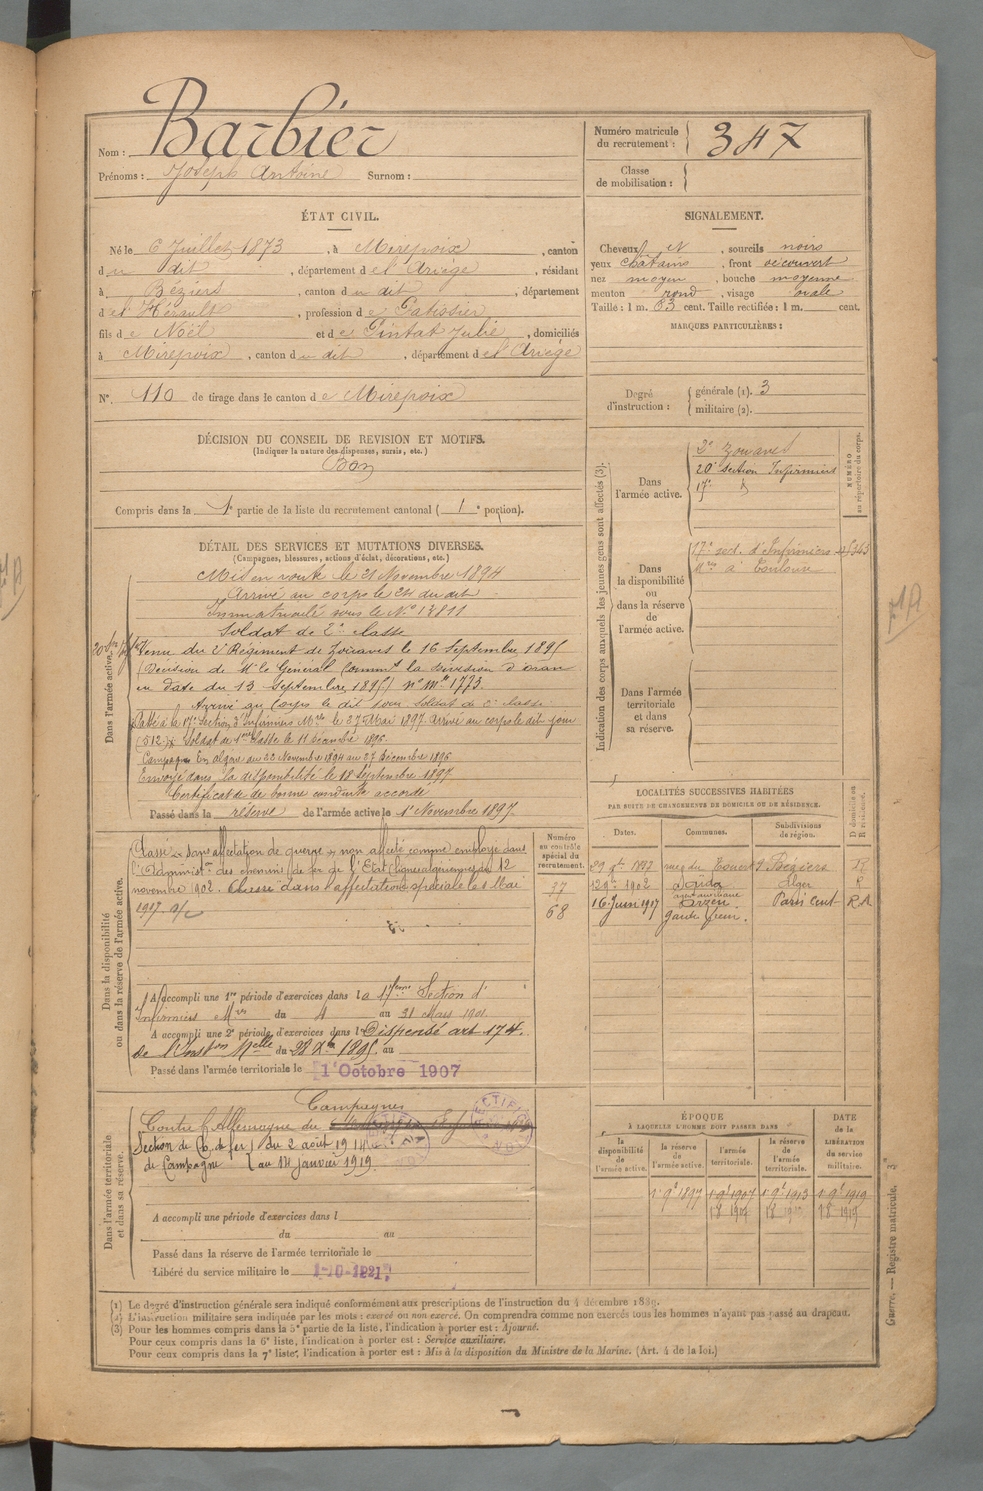 Nom : Barbier
Prénoms : Joseph Antoine Surnom :
Numéro matricule du recrutement : 347
Classe de mobilisation :
ÉTAT CIVIL.
Né le 6 Juillet 1873, à Mirepoix, canton
du dit, département de l'Ariège, résidant
à Béziers, canton du dit, département
de l'Hérault, profession de Patissier
fils de Noël et de Pintat Julie, domiciliés
à Mirepoix, canton du dit, département de l'Ariège
N° 110 de tirage dans le canton de Mirepoix
SIGNALEMENT.
Cheveux et, sourcils noirs
yeux chatains, front découvert
nez moyen, bouche moyenne
menton rond, visage ovale
Taille : 1 m. 63 cent. Taille rectifiée : 1 m. cent.
MARQUES PARTICULIÈRES :
Degré d'instruction : générale (1). 3
militaire (2).
DÉCISION DU CONSEIL DE REVISION ET MOTIFS.
(Indiquer la nature des dispenses, sursis, etc.)
Bon
Compris dans la 1e partie de la liste du recrutement cantonal ( 1e portion).
DÉTAIL DES SERVICES ET MUTATIONS DIVERSES.
(Campagnes, blessures, actions d'éclat, décorations, etc.)
Dans l'armée active.
Mis en route le 21 Novembre 1894
Arrivé au corps le 24 du dit
Immatriculé sous le N° 13811
Soldat de 2e classe
Venu du 2e Régiment de Zouaves le 16 Septembre 1895
(Décision de Mr le Général Commt la division d'Oran
en date du 13 Septembre 1895) n° mle 1773.
Arrivé au Corps le dit jour. Soldat de 2e classe
Passé à la 17e Section d'Infirmiers Mres le 27 Mai 1897. Arrivé au corps le dit jour
Soldat de 1ere classe le 11 décembre 1896.
Campagne En algérie du 22 Novembre 1894 au 27 décembre 1896
Envoyé dans la disponibilité le 18 Septembre 1897
Certificat de bonne conduite accordé
Passé dans la réserve de l'armée active le 1er Novembre 1897.
Indication des corps auxquels les jeunes gens sont affectés (3).
NUMÉRO au répertoire du corps.
Dans l'armée active.
2e Zouaves
20e Section Infirmiers
17e
Dans la disponibilité ou dans la réserve de l'armée active.
17e sect. d'Infirmiers
Mres à Toulouse
Dans l'armée territoriale et dans sa réserve.
LOCALITÉS SUCCESSIVES HABITÉES
PAR SUITE DE CHANGEMENTS DE DOMICILE OU DE RÉSIDENCE.
Dates. Communes. Subdivisions de région. D domicile ou R résidence.
Béziers
1902 Alger R
16 Juin 1917 Arzen Paris Cent R.A
Dans la disponibilité ou dans la réserve de l'armée active.
Numéro au contrôle spécial du recrutement.
37
68
Classé dans affectation de guerre non affecté comme employé dans
l'Administon des chemins de fer de l'Etat 12
novembre 1902. Classé dans l'affectation spéciale le 1 Mai
1917
A accompli une 1re période d'exercices dans la 17eme Section d'
Infirmiers Mres du 4 au 31 Mars 1901
A accompli une 2e période d'exercices dans l Dispensé art 174.
de l'Inston Melle du 28 Xbre 1895. au
Passé dans l'armée territoriale le 1er Octobre 1907
Dans l'armée territoriale et dans sa réserve.
Campagnes
Contre l'Allemagne du
Section de Ch. de fer du 2 août 1914
de Campagne au 14 janvier 1919.
RECTIFIÉ
RECTIFIÉ
A accompli une période d'exercices dans l
du au
Passé dans la réserve de l'armée territoriale le
Libéré du service militaire le 1-10-1921
ÉPOQUE
À LAQUELLE L'HOMME DOIT PASSER DANS
la disponibilité de l'armée active. la réserve de l'armée active. l'armée territoriale. la réserve de l'armée territoriale. DATE de la LIBÉRATION du service militaire.
1 9e 1897 1 9e 1907 1 9e 1913 1 9e 1919
Guerre. — Registre matricule.
(1) Le degré d'instruction générale sera indiqué conformément aux prescriptions de l'instruction du 4 décembre 1889.
(2) L'instruction militaire sera indiquée par les mots : exercé ou non exercé. On comprendra comme non exercés tous les hommes n'ayant pas passé au drapeau.
(3) Pour les hommes compris dans la 5e partie de la liste, l'indication à porter est : Ajourné.
Pour ceux compris dans la 6e liste, l'indication à porter est : Service auxiliaire.
Pour ceux compris dans la 7e liste, l'indication à porter est : Mis à la disposition du Ministre de la Marine. (Art. 4 de la loi.)